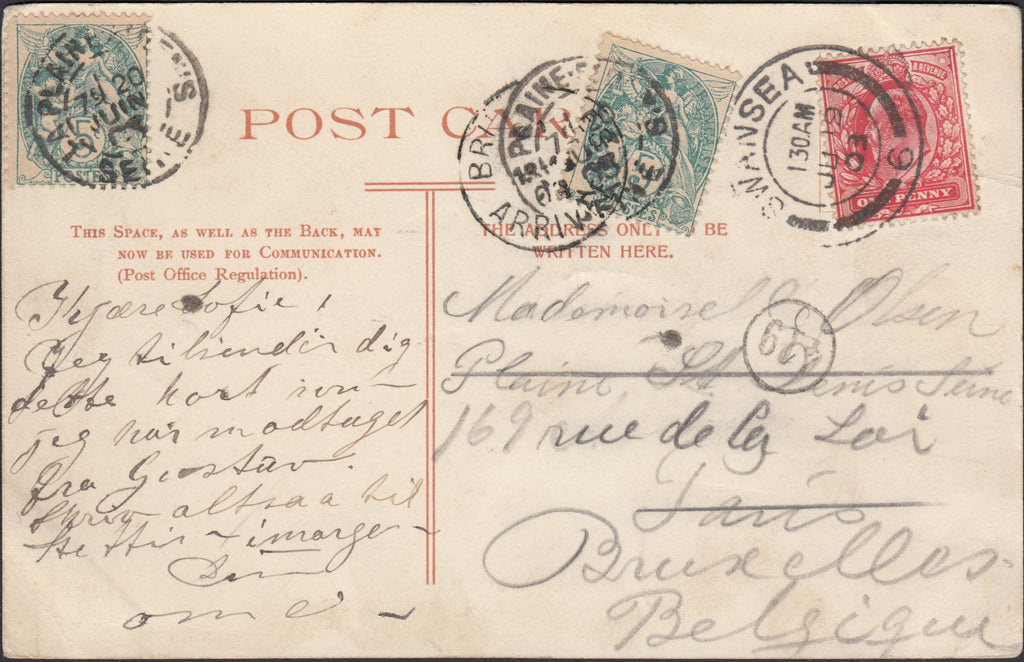 POST CARD
THIS SPACE, AS WELL AS THE BACK, MAY
NOW BE USED FOR COMMUNICATION.
(Post Office Regulation).
THE ADDRESS ONLY BE
WRITTEN HERE.
SWANSEA
1 30 AM
JU 19
03
6
ONE PENNY
& REVENUE
LA PLAINE ST DENIS
SEINE
20
JUIN
POSTES
PLAINE
ARRIV
Kjære Sofie,
Jeg tilsender dig
dette kort som
jeg har modtaget
fra Gustav.
Skriv altsaa til
imorgen
Mademoiselle Olsen
Plaine St Denis Seine
169 rue de la
Paris
Bruxelles
Belgique